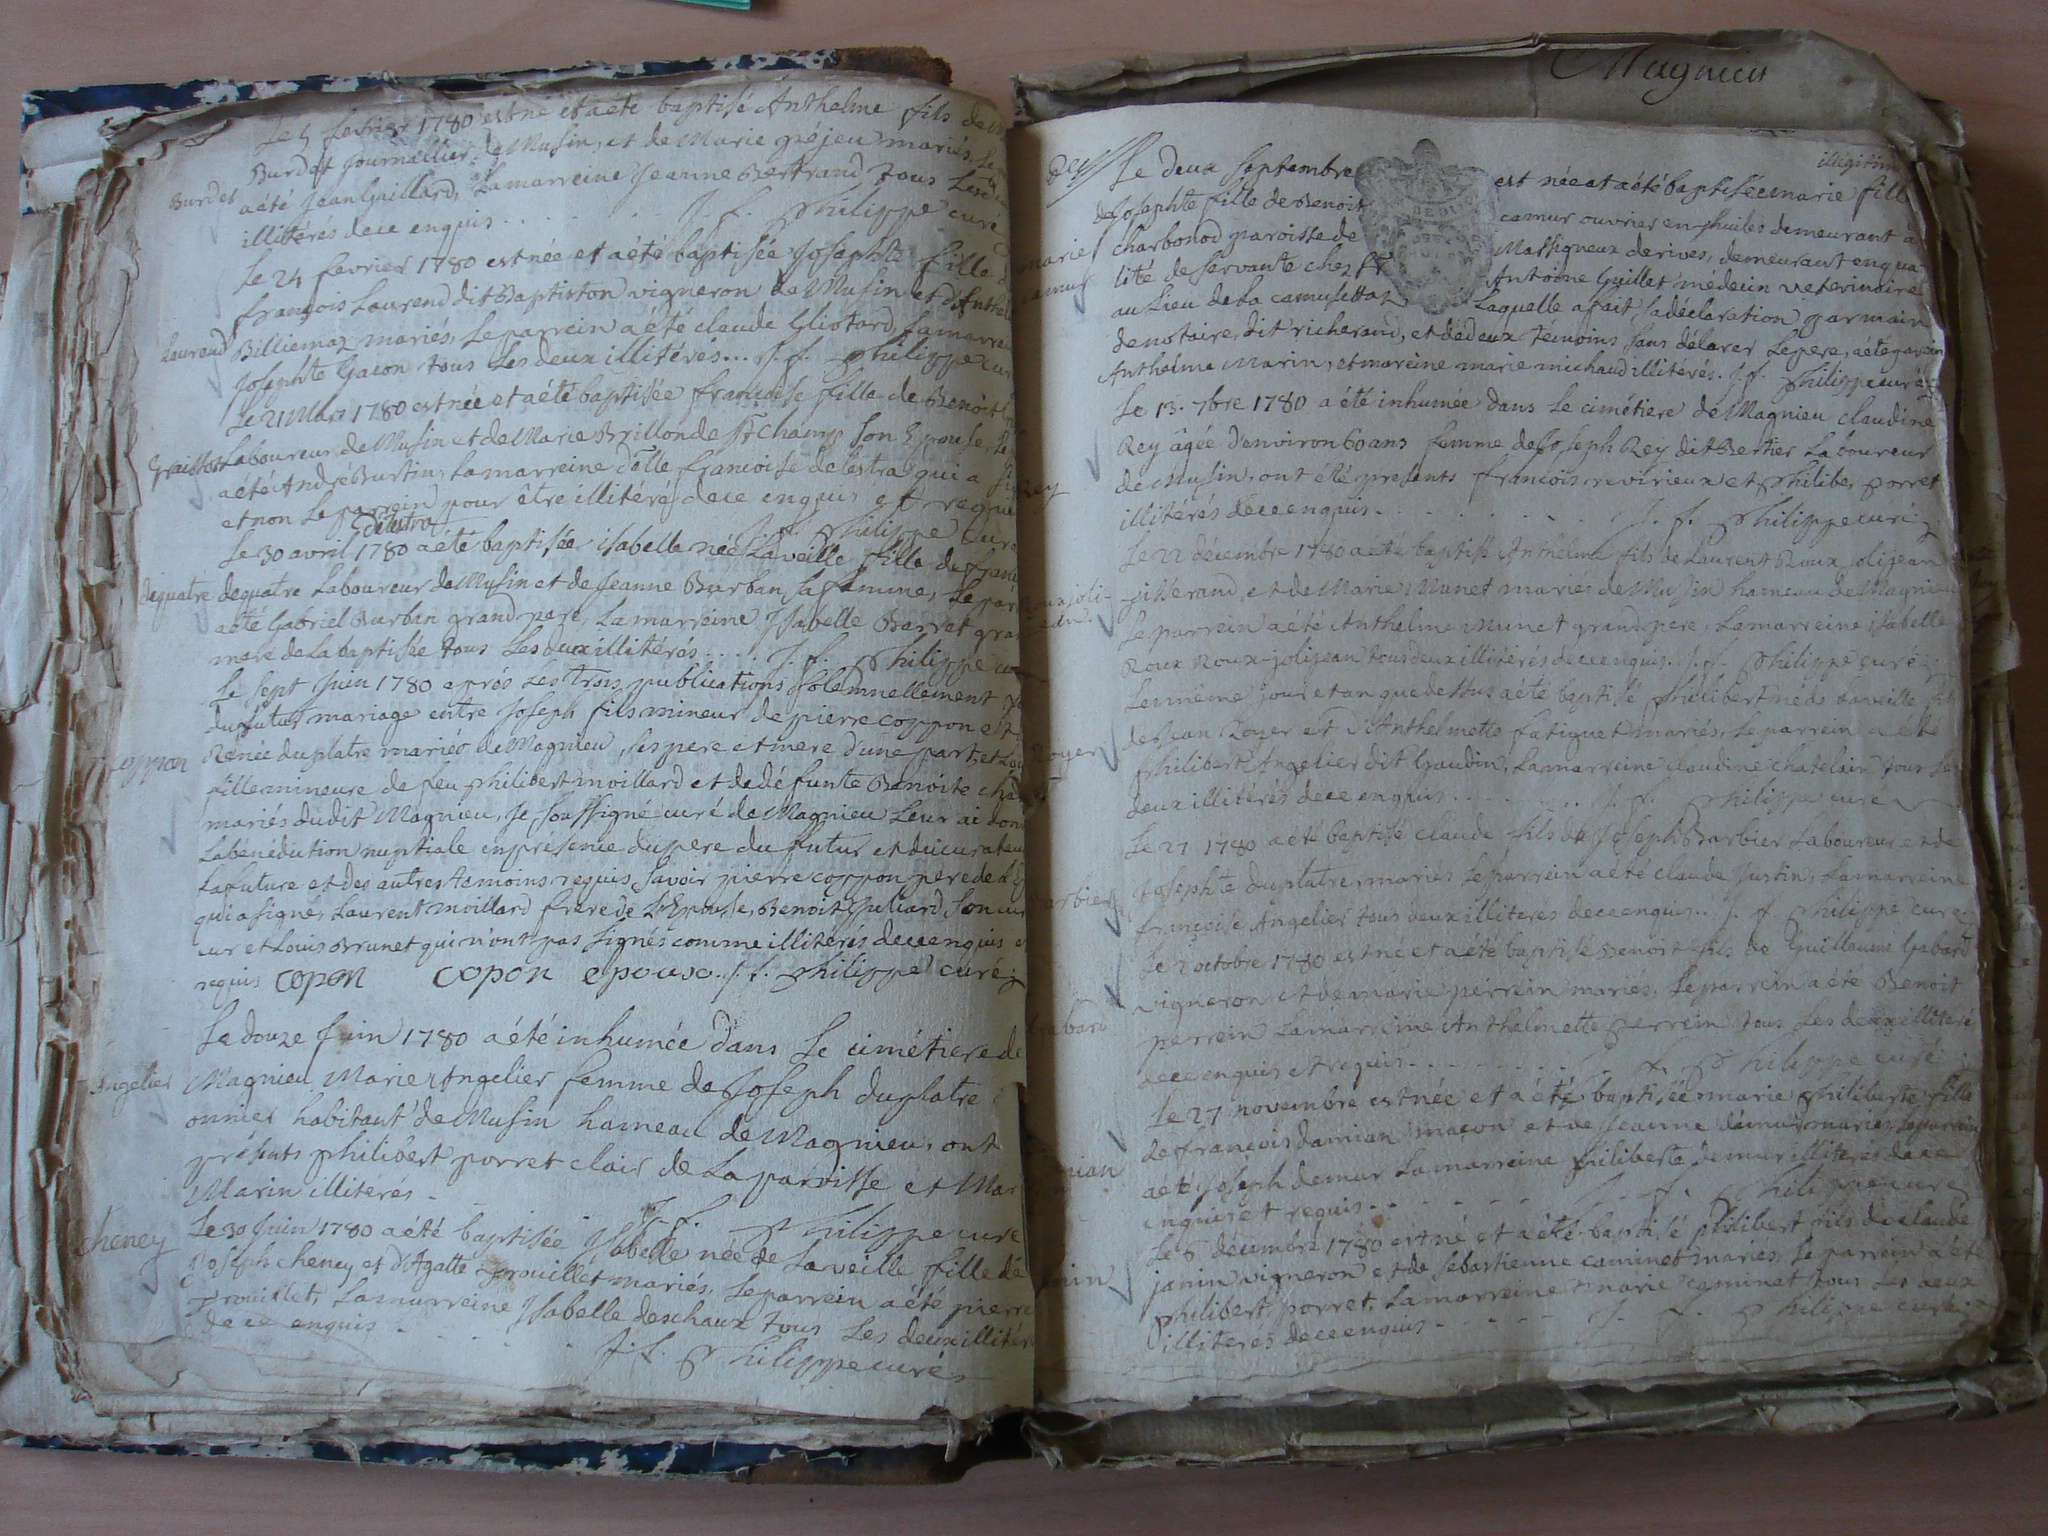 Le 5 fevrier 1780 est né et a été baptisé Anthelme fils de
Burdet journallier de Musin, et de Marie péjeu mariés, Le
Burdet
a été Jean Guillard, La marreine Jeanne Bertrand tous Les
illitérés de ce enquis . . . . . J. f. Philippe curé
Le 24 fevrier 1780 est née et a été baptisée Josephte fille
françois Laurend dit Baptiston vigneron de Musin et d'Anthel
Laurend
Billiemaz mariés, Le parrein a été claude Gliotard, La marre
Josephte Gacon tous Les deux illitérés... J. f. Philippe cur
Le 21 Mars 1780 est née et a été baptisée francoise fille de Benoit
Laboureur de Musin et de Marie Brillon de St champ son Epouse, Le
a été André Burtin, La marreine dlle francoise delestra qui a
et non Le parrein pour être illitéré de ce enquis et requis
delestra J. f. Philippe cure
Le 30 avril 1780 a été baptisée isabelle née La veille fille de franc
dequatre
dequatre Laboureur de Musin et de Jeanne Burban sa femme, Le par
a été Gabriel Burban grand pere, La marreine Isabelle Barret gran
mere de La baptisée tous Les deux illitérés . . . . J. f. Philippe cu
Le sept Juin 1780 aprés Les trois publications solemnellement
du futur mariage entre Joseph fils mineur de pierre coppon et
coppon
Renée duplatre mariés de Magnieu, ses pere et mere d'une part, et Lou
fille mineure de feu philibert moillard et de défunte Benoite cha
mariés dudit Magnieu, Je soussigné curé de Magnieu Leur ai donn
La bénédiction nuptiale en présence du pere du futur et du curateur
La future et des autres temoins requis, savoir pierre coppon pere de L'Ep
qui a signé, Laurent moillard frere de L'Epouse, Benoit Juliard, son cur
eur et Louis Brunet qui n'ont pas signés comme illitérés de ce enquis et
requis copon copon epoux. J. f. Philippe curé
Le douze Juin 1780 a été inhumée dans Le cimétiere de
Angelier
Magnieu Marie Angelier femme de Joseph duplatre
onnier habitant de Musin hameau de Magnieu, ont
présents philibert porret clair de La paroisse et Mar
Marin illitérés . J. f. Philippe curé
cheney
Le 30 Juin 1780 a été baptisée Isabelle née de La veille fille de
Joseph cheney et d'Agatte prouillet mariés, Le parrein a été pierre
prouillet, La marreine Isabelle deschaux tous Les deux illitér
de ce enquis . . . .
J. f. Philippe curé
Magnieu
illegitim
Le deux septembre est née et a été baptisée marie fille
de Josephte fille de Benoit camur ouvrier en thuiles demeurant a
charbonod paroisse de Massigneux de rives, demeurant en qua-
marie
camur
lité de servante chez Sr Antoine Guillet médecin veterinaire
au Lieu de La camusettaz Laquelle a fait sa déclaration par main
de notaire, dit richerand, et de deux temoins sans délarer Le pere, a été parein
Anthelme Marin, et mareine marie michaud illiteres. J. f. Philippe curé
Le 13. 7bre 1780 a été inhumée dans Le cimétiere de Magnieu claudine
Rey âgée d'environ 60 ans femme de Joseph Rey dit Bertier Laboureur
Rey
de Musin, ont été présents francois revirieux et Philiber porret
illitérés de ce enquis . . . . . J. f. Philippe curé
Le 22 décembre 1780 a été baptisé Anthelme fils de Laurent Roux jolijean
tisserand, et de Marie Munet mariés de Musin hameau de Magnieu
Le parrein a été Anthelme Munet grand pere, La marreine isabelle
Roux Roux-jolijean tous deux illitérés de ce enquis. J. f. Philippe curé
Le même jour et an que dessus a été baptisé philibert né de La veille fils
de Jean Royer et d'Anthelmette fatiguet mariés, Le parrein a été
Royer
Philibert Angelier dit Gaudin, La marreine claudine chatelain tous Les
deux illitérés de ce enquis . . . . . J. f. Philippe curé
Le 27 1780 a été baptisé claude fils de Joseph Barbier Laboureur et de
Josephte duplatre mariés Le parrein a été claude Justin, La marreine
Barbier
francoise Angelier tous deux illiteres de ce enquis.. J. f. Philippe curé
Le 2 octobre 1780 est né et a été baptisé Benoit fils de Guilleaume Gabard
vigneron et de marie perrein mariés, Le parrein a été Benoit
Gabard
perrein La marreine Anthelmette perrein tous Les deux illiteré
de ce enquis et requis . . . . . J. f. Philippe curé
Le 27 novembre est née et a été baptisée marie philiberte fille
de francois damian maçon et de Jeanne demur mariés, Le parrein
damian
a été Joseph demur La marreine philiberte demur illiterés de ce
enquis et requis . . . . . J. f. Philippe curé
Le 6 décembre 1780 est né et a été baptisé philibert fils de claude
janin vigneron et de sebastienne caminet mariés, Le parrein a été
janin
Philibert porret, La marreine marie caminet tous Les deux
illiteres de ce enquis . . . . . J. f. Philippe curé